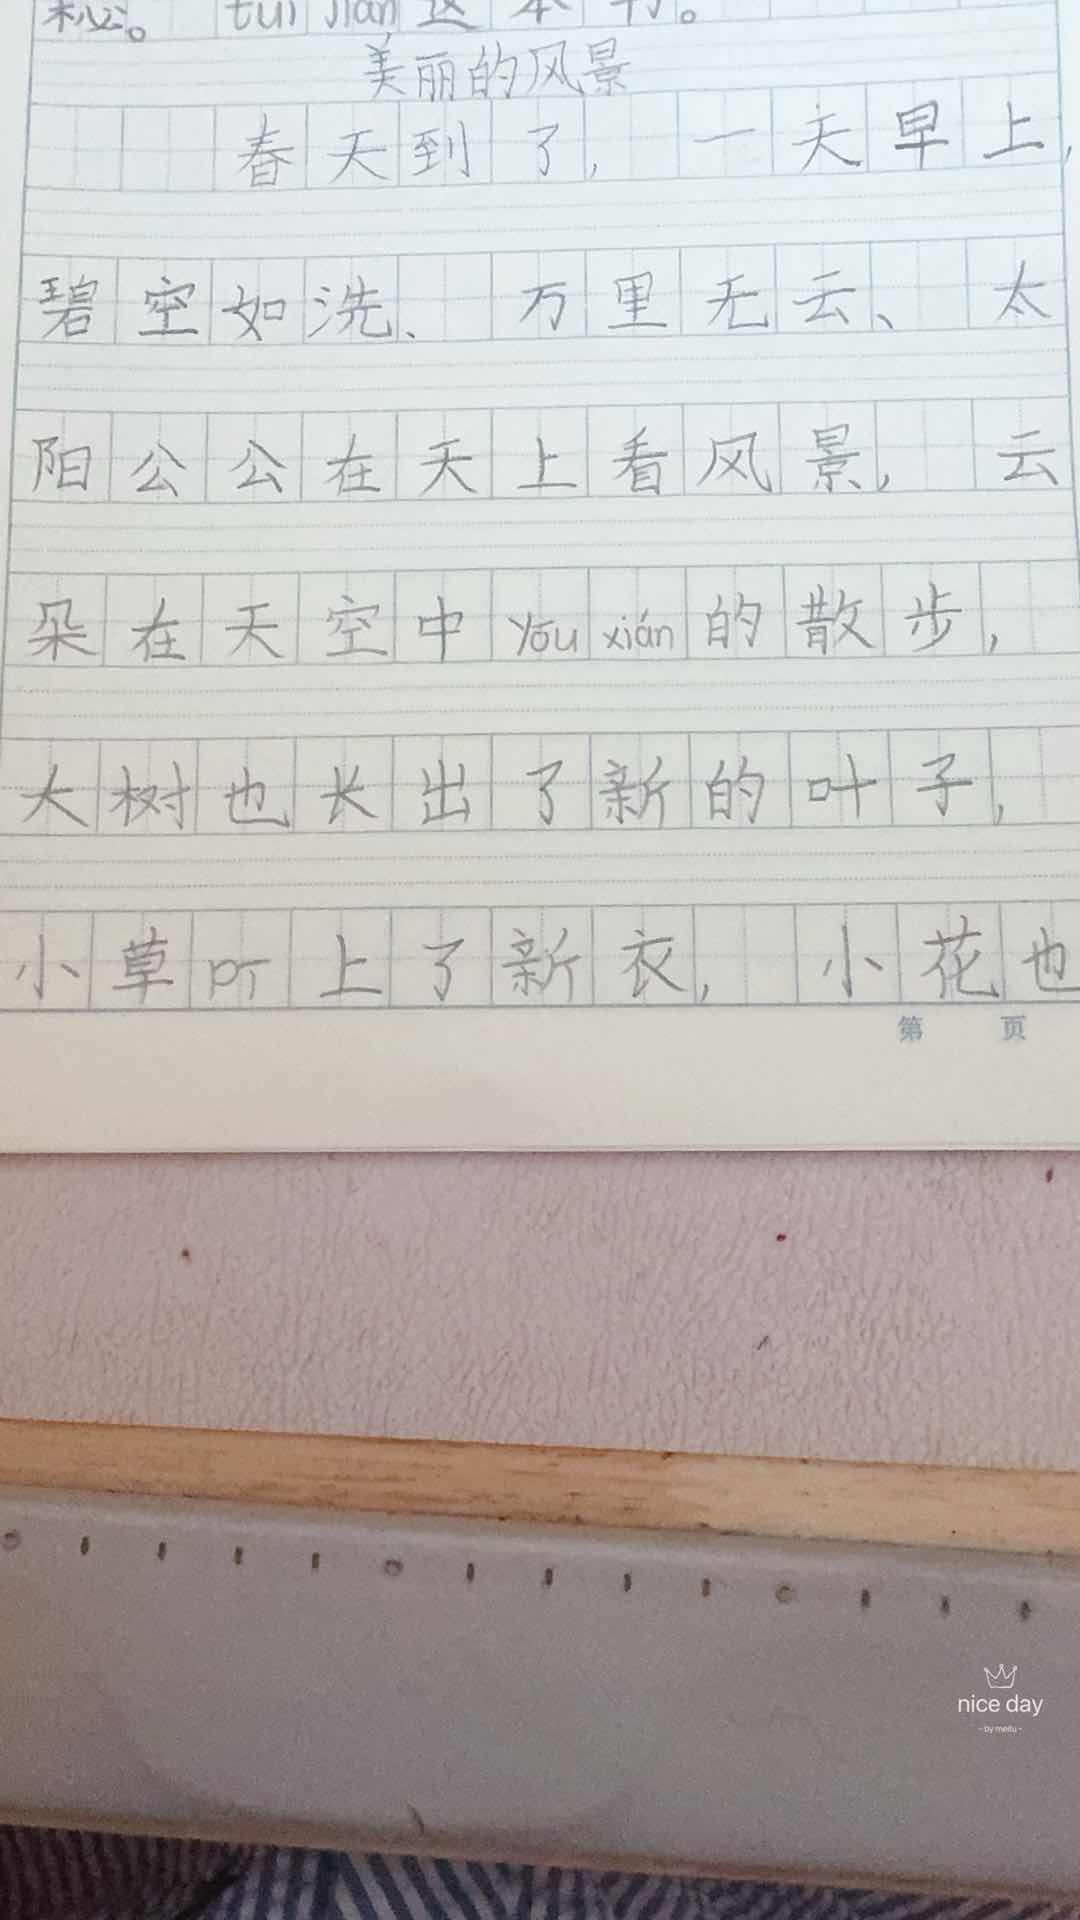 秘。tuī jiàn这本书。
美丽的风景
春天到了，一天早上，
碧空如洗、万里无云、太
阳公公在天上看风景，云
朵在天空中yōu xián的散步，
大树也长出了新的叶子，
小草 上了新衣，小花也
第 页
nice day
- by meitu -